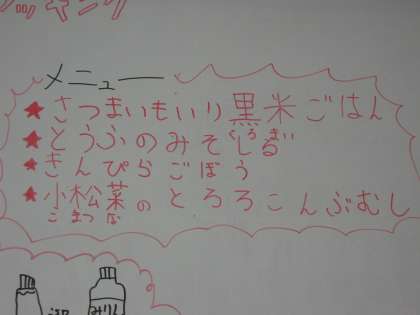 ッキング
メニュー
★さつまいもいり黒米ごはん
くろまい
★とうふのみそしる
★きんぴらごぼう
★小松菜のとろろこんぶむし
こまつな
みりん